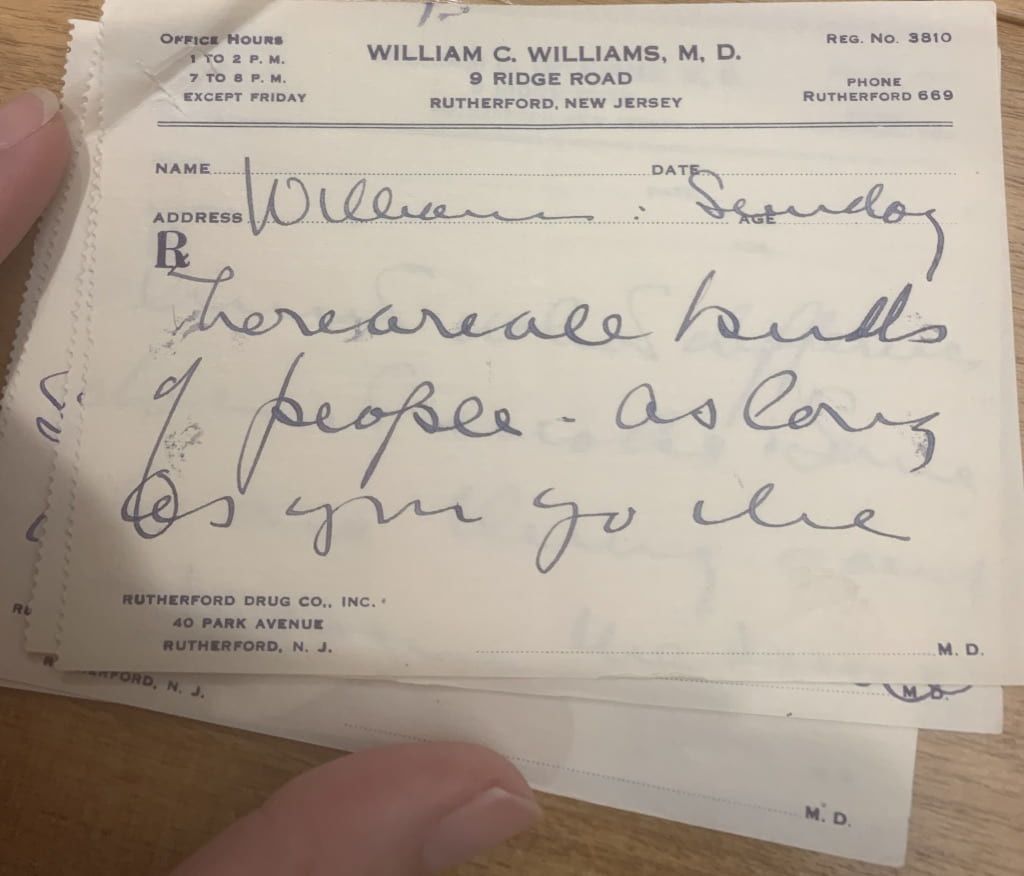 OFFICE HOURS
1 TO 2 P. M.
7 TO 8 P. M.
EXCEPT FRIDAY
WILLIAM C. WILLIAMS, M. D.
9 RIDGE ROAD
RUTHERFORD, NEW JERSEY
REG. NO. 3810
PHONE
RUTHERFORD 669
NAME DATE
ADDRESS AGE
William : Sunday
℞
There are all kinds
of people - as long
as you go the
RUTHERFORD DRUG CO., INC.
40 PARK AVENUE
RUTHERFORD, N. J.
M. D.
RU
RFORD, N. J.
M. D.
M. D.